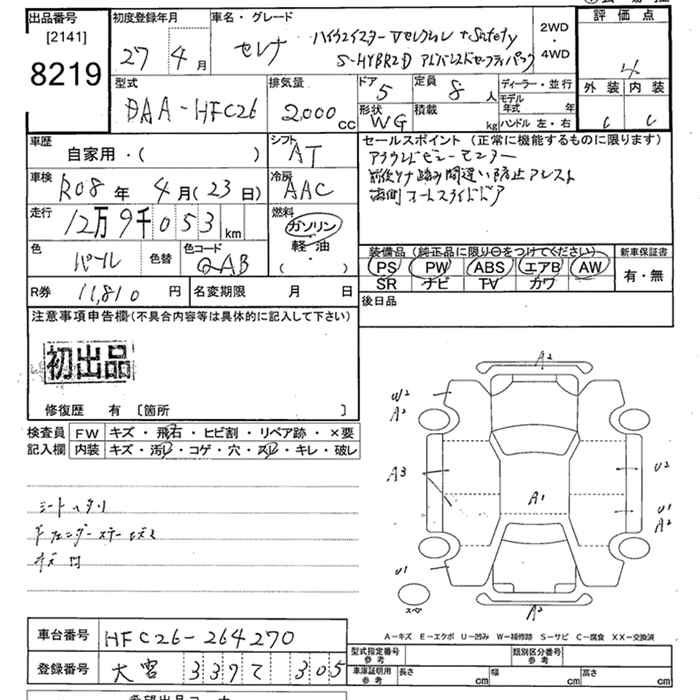 出品店No.
[2141]
8219
初度登録年月
27年 4月
車名・グレード
セレナ
ハイウェイスター Vセレクション + Safety
S-HYBRID アドバンスドセーフティパック
2WD
・
4WD
評価点
4
外装 内装
C C
型式
DAA-HFC26
排気量
2.000 cc
ドア
5
定員
8 人
形状
WG
積載
kg
ディーラー・並行
モデル年式 年
ハンドル 左・右
車歴
自家用・( )
シフト
AT
車検
R08年 4月(23日)
冷房
AAC
走行
12万9千053 km
燃料
ガソリン
軽油
( ・ )
色
パール
色替
色コード
QAB
R券 11,810 円
名変期限 月 日
セールスポイント(正常に機能するものに限ります)
アラウンドビューモニター
前後ナナ踏み間違い防止アシスト
両側オートスライドドア
装備品(純正品に限り○をつけてください)
PS PW ABS エアB AW
SR ナビ TV カワ
新車保証書
有・無
後日品
注意事項申告欄(不具合内容等は具体的に記入して下さい)
初出品
修復歴 有 [箇所 ]
検査員記入欄
FW キズ・飛石・ヒビ割・リペア跡・×要
内装 キズ・汚レ・コゲ・穴・スレ・キレ・破レ
シートヘタリ
キズ凹
A2
W2
A2
A3
A1
U2
U1
A2
U1
スペア
A2
A−キズ E−エクボ U−凹み W−補修跡 S−サビ C−腐食 XX−交換済
車台番号 HFC26-264270
登録番号 大宮 337 て 305
型式指定番号 参考
類別区分番号 参考
車庫証明用 参考
長さ cm
幅 cm
高さ cm
希望出品コーナー